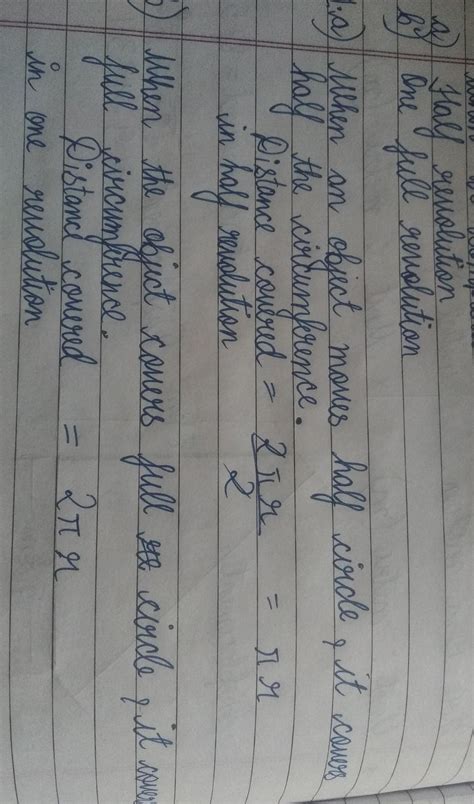 a) Half revolution
b) One full revolution
1.a) When an object moves half circle, it covers
half the circumference.
Distance covered = 2πr/2 = πr
in half revolution
b) When the object covers full circle, it covers
full circumference.
Distance covered = 2πr
in one revolution